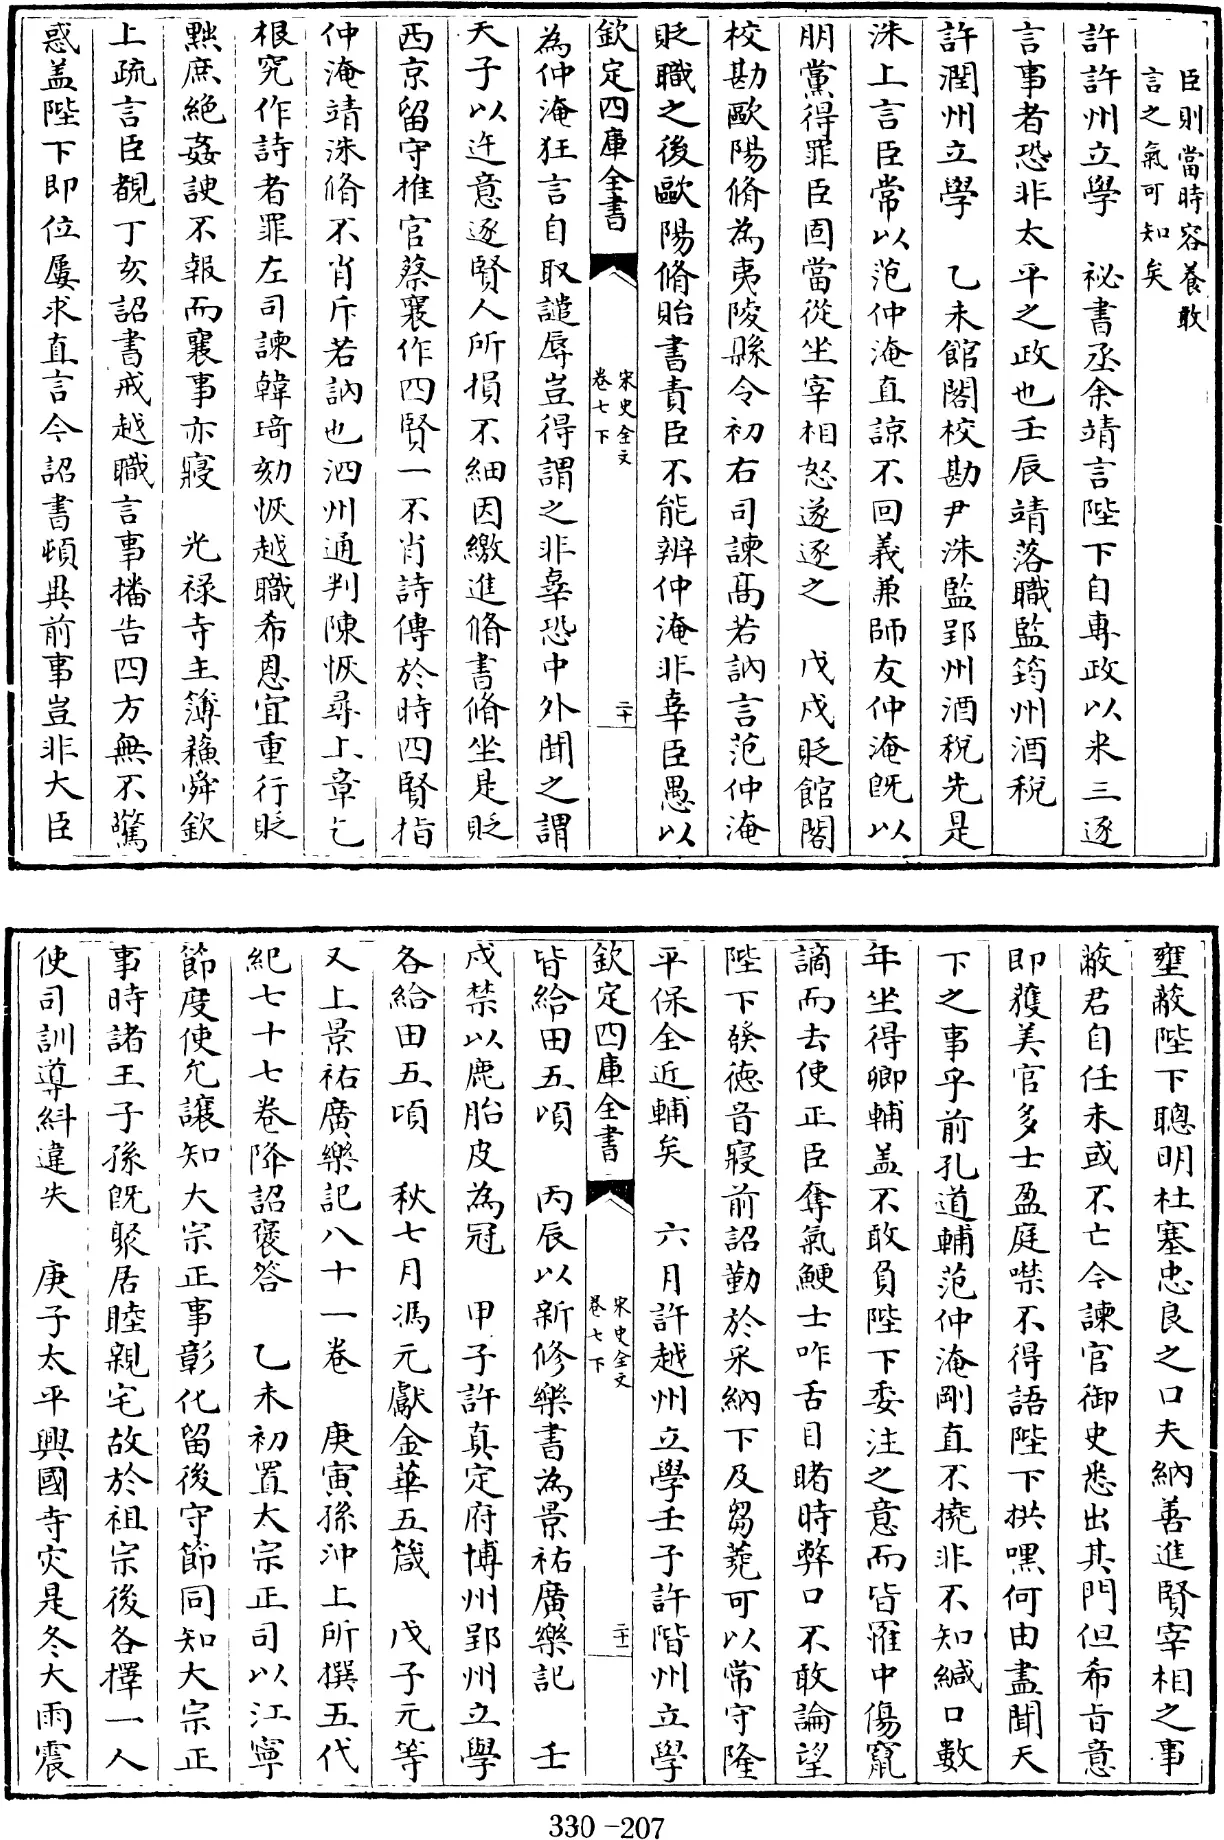 臣則當時容養敢
言之氣可知矣
許許州立學　祕書丞余靖言陛下自專政以来三逐
言事者恐非太平之政也壬辰靖落職監筠州酒稅
許潤州立學　乙未館閣校勘尹洙監郢州酒稅先是
洙上言臣常以范仲淹直諒不回義兼師友仲淹旣以
朋黨得罪臣固當從坐宰相怒遂逐之　戊戌貶館閣
校勘歐陽脩為夷陵縣令初右司諫髙若訥言范仲淹
貶職之後歐陽脩貽書責臣不能辨仲淹非辜臣愚以
欽定四庫全書
宋史全文
卷七下
二十
為仲淹狂言自取譴辱豈得謂之非辜恐中外聞之謂
天子以迕意逐賢人所損不細因繳進脩書脩坐是貶
西京留守推官蔡襄作四賢一不肖詩傳於時四賢指
仲淹靖洙脩不肖斥若訥也泗州通判陳恢尋上章乞
根究作詩者罪左司諫韓琦劾恢越職希恩宜重行貶
黜庶絶姦諛不報而襄事亦寢　光祿寺主簿蘓舜欽
上疏言臣覩丁亥詔書戒越職言事播告四方無不驚
惑盖陛下即位屢求直言今詔書頓異前事豈非大臣
壅蔽陛下聰明杜塞忠良之口夫納善進賢宰相之事
蔽君自任未或不亡今諫官御史悉出其門但希㫖意
即獲美官多士盈庭噤不得語陛下拱嘿何由盡聞天
下之事乎前孔道輔范仲淹剛直不撓非不知緘口數
年坐得卿輔盖不敢負陛下委注之意而皆罹中傷竄
謫而去使正臣奪氣鯁士咋舌目睹時弊口不敢論望
陛下發德音寢前詔勤於采納下及芻蕘可以常守隆
平保全近輔矣　六月許越州立學壬子許階州立學
欽定四庫全書
宋史全文
卷七下
二十一
皆給田五頃　丙辰以新修樂書為景祐廣樂記　壬
戌禁以鹿胎皮為冠　甲子許真定府博州郢州立學
各給田五頃　秋七月馮元獻金華五箴　戊子元等
又上景祐廣樂記八十一卷　庚寅孫沖上所撰五代
紀七十七卷降詔褒答　乙未初置太宗正司以江寧
節度使允讓知大宗正事彰化留後守節同知大宗正
事時諸王子孫旣聚居睦親宅故於祖宗後各擇一人
使司訓導糾違失　庚子太平興國寺灾是冬大雨震
330-207